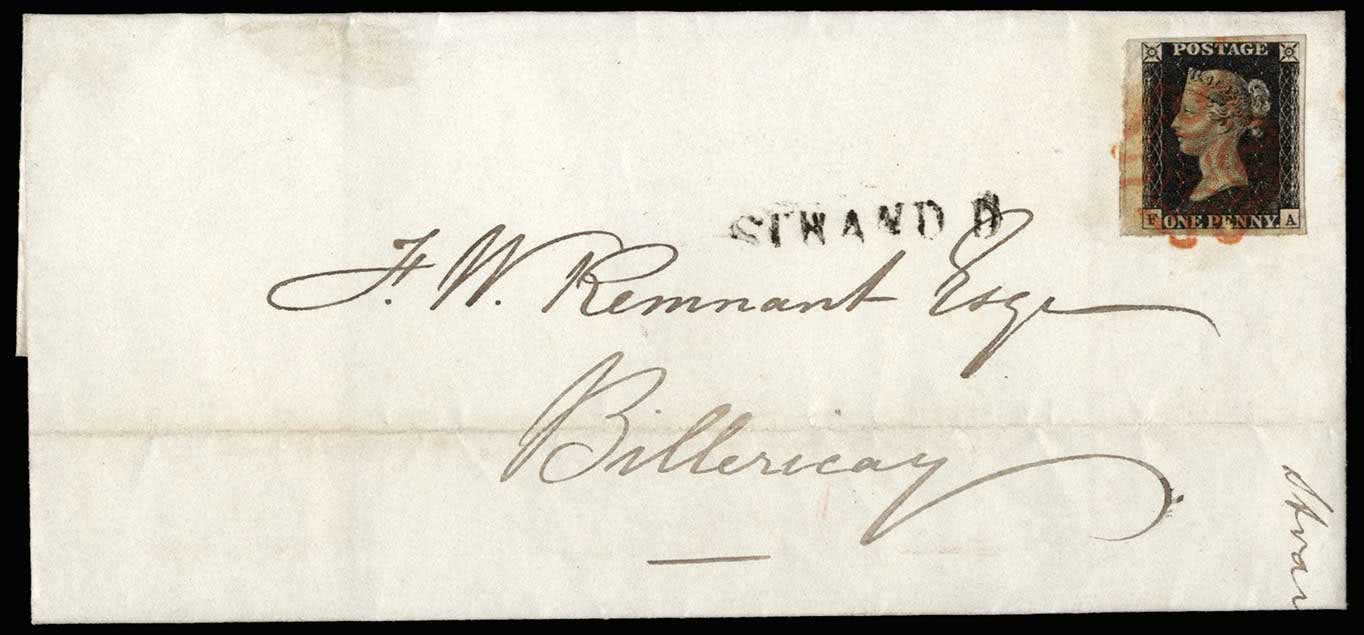 POSTAGE
F ONE PENNY. A
STRAND D
F. W. Remnant Esqe
Billericay